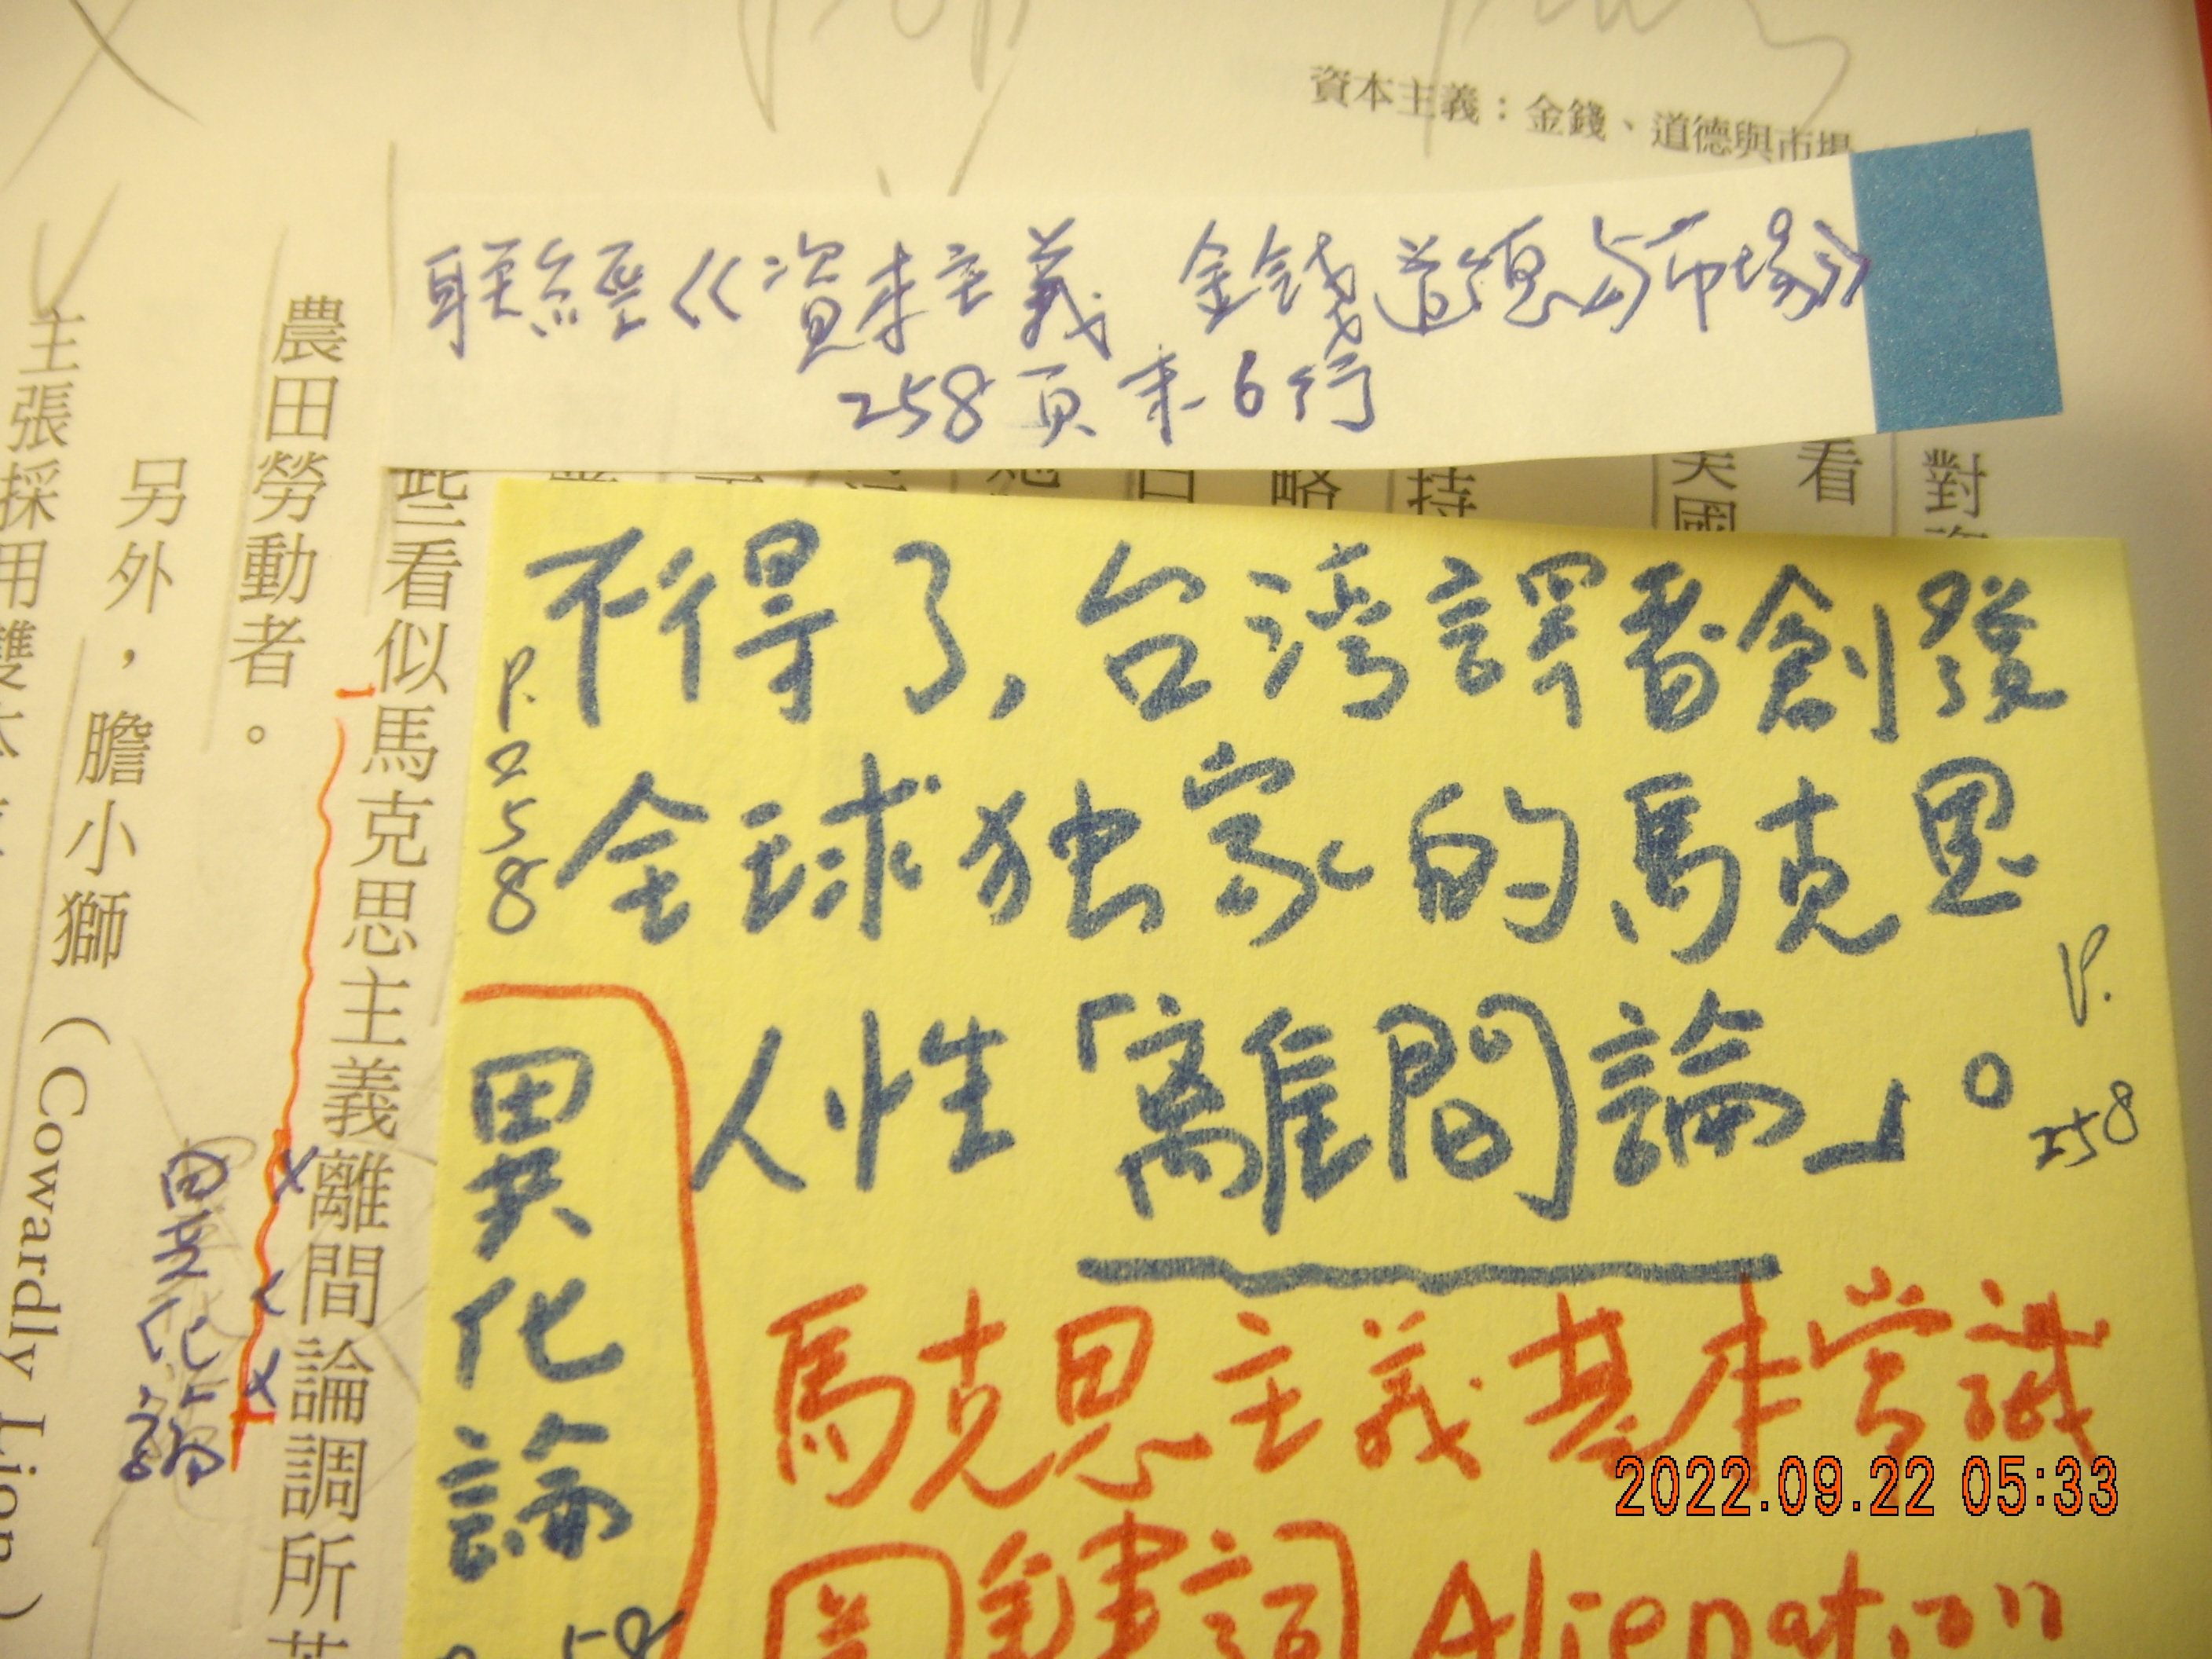 資本主義：金錢、道德與市場
聯經《資本主義 金錢道德与市場》
258頁末6行
對
看
美國
持
略
日
些看似馬克思主義離間論調所
農田勞動者。
另外，膽小獅（Cowardly Lion）
主張採用雙本
異化論
不得了，台湾譯者創發
全球独家的馬克思
人性「離間論」。
P.258
P.258
異化論
馬克思主義基本常識
關鍵詞 Alienation
2022.09.22 05:33